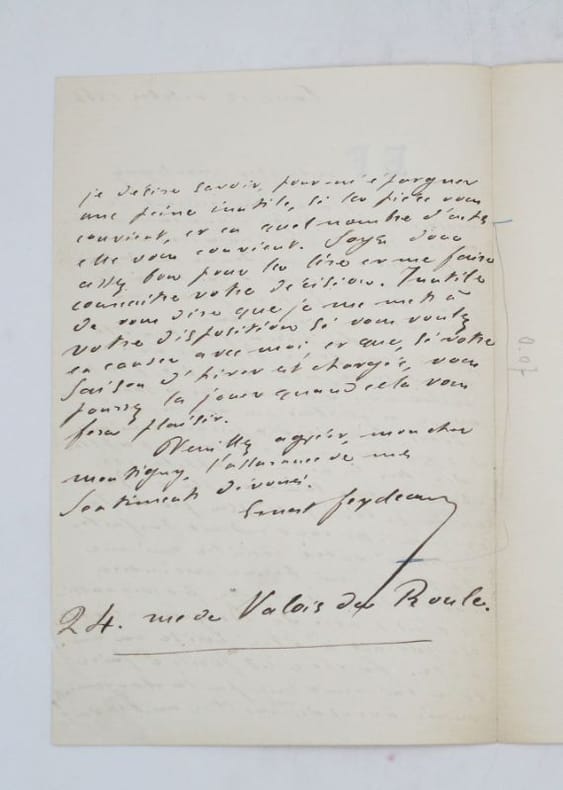 je désire savoir, pour m'épargner
une peine inutile, si la pièce vous
convient, et en quel nombre d'actes
elle vous convient. Soyez donc
assez bon pour la lire et me faire
connaitre votre décision. Inutile
de vous dire que je me mets à
votre disposition si vous voulez
en causer avec moi et que, si votre
saison d'hiver est chargée, vous
pourrez la jouer quand cela vous
fera plaisir.
Veuillez agréer, mon cher
Montigny, l'assurance de mes
sentiments dévoués.
Ernest Feydeau
24. rue de Valois du Roule.